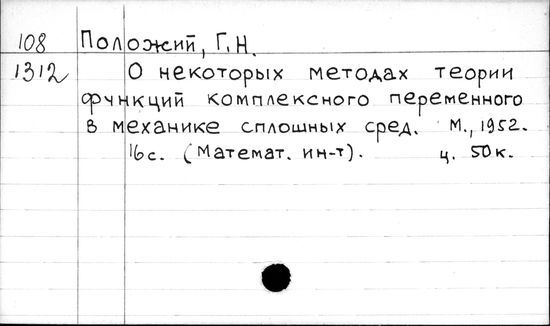 108 Положий, Г.Н.
1312 О некоторых методах теории
функций комплексного переменного
в механике сплошных сред. М., 1952.
16с. (Математ. ин-т). ц. 50к.